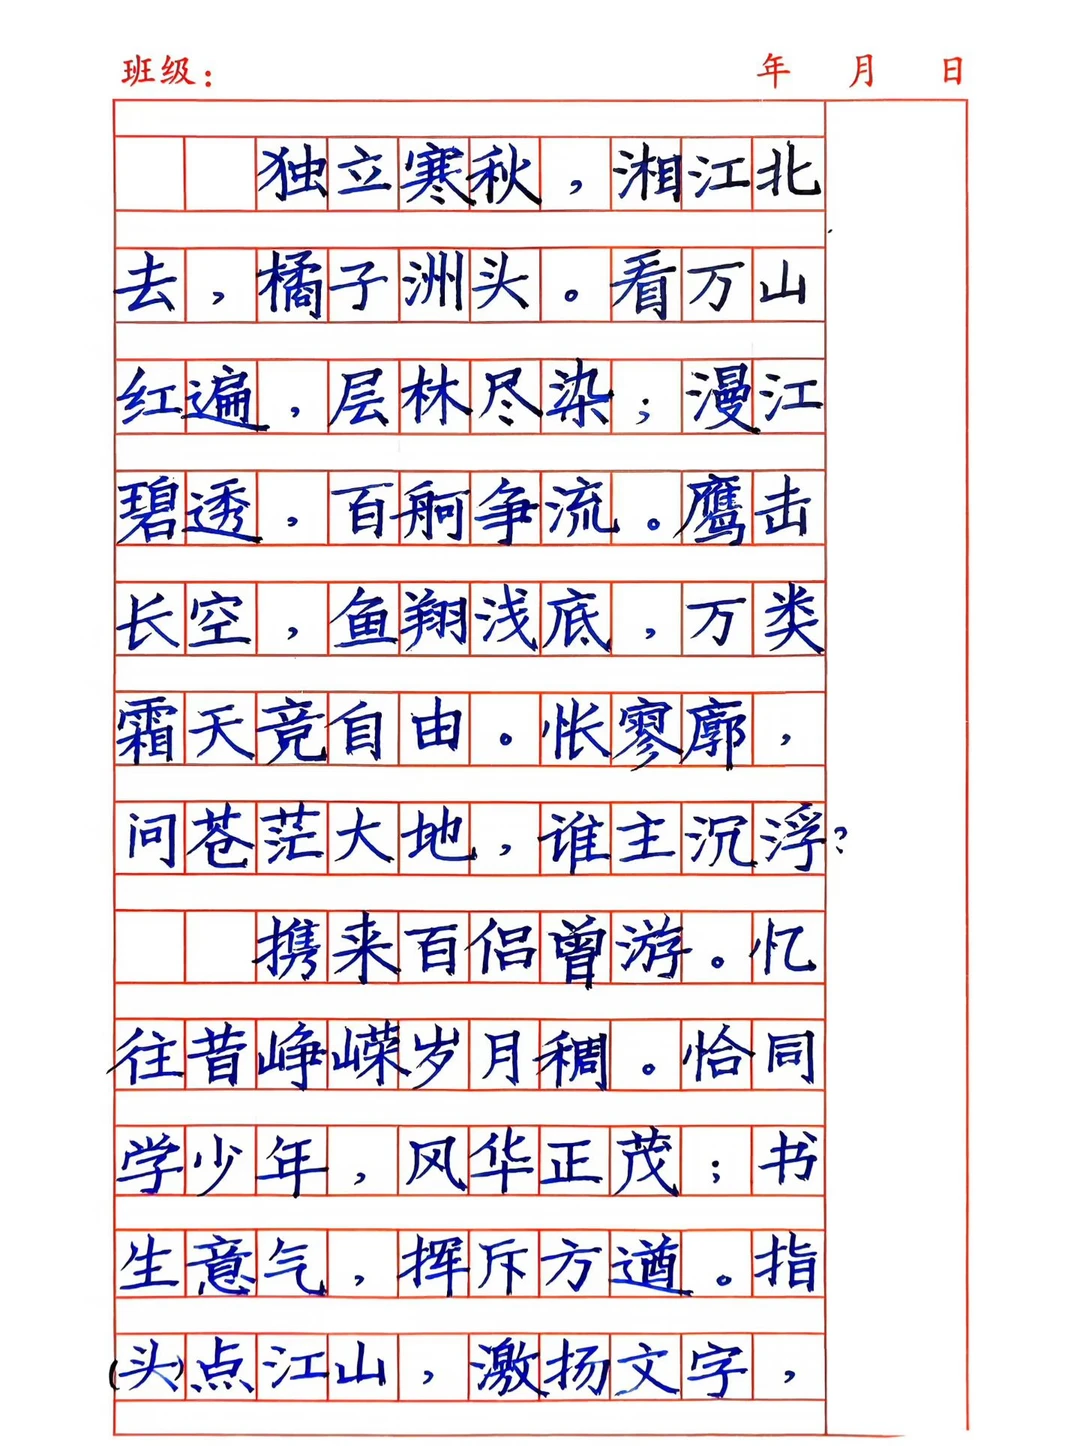 班级： 年 月 日
独立寒秋，湘江北
去，橘子洲头。看万山
红遍，层林尽染；漫江
碧透，百舸争流。鹰击
长空，鱼翔浅底，万类
霜天竞自由。怅寥廓，
问苍茫大地，谁主沉浮？
携来百侣曾游。忆
往昔峥嵘岁月稠。恰同
学少年，风华正茂；书
生意气，挥斥方遒。指
(头)点江山，激扬文字，